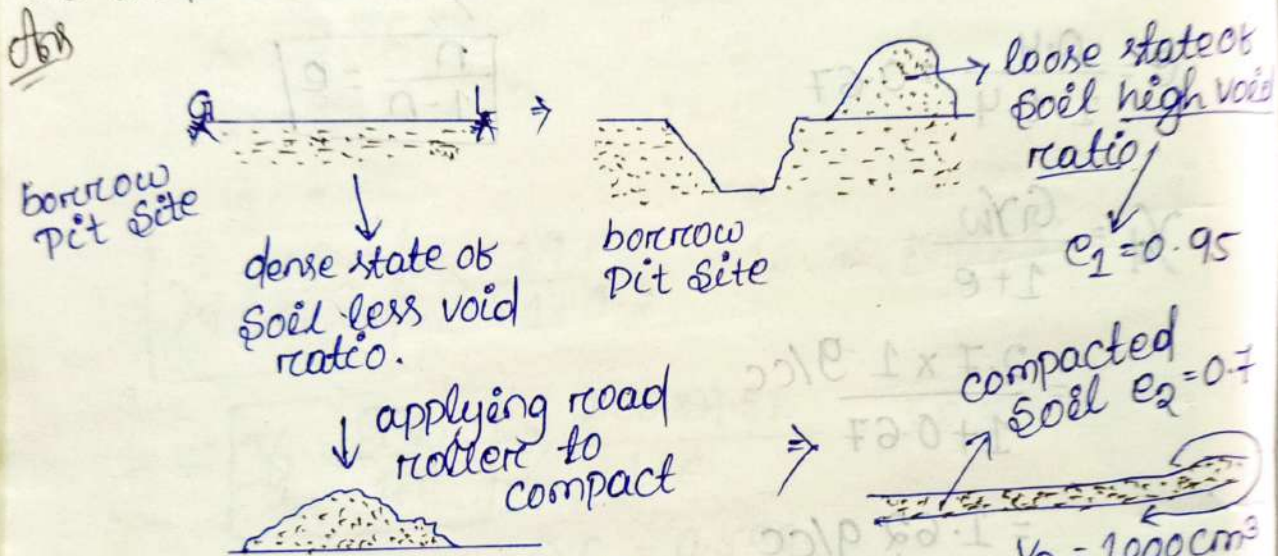 Ans
G L
borrow
Pit Site
dense state of
Soil less void
ratio.
⇒
borrow
Pit Site
→ loose state of
Soil high void
ratio
e₁ = 0.95
↓ applying road
roller to
compact
⇒
compacted
Soil e₂ = 0.7
V₂ = 1000 cm³